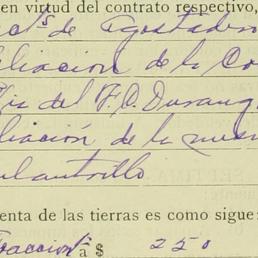 en virtud del contrato respectivo,
de Agostadero
liación de la Co
del F.C. Durang
liación de la mesa
lantrillo
enta de las tierras es como sigue:
racción á $ 250